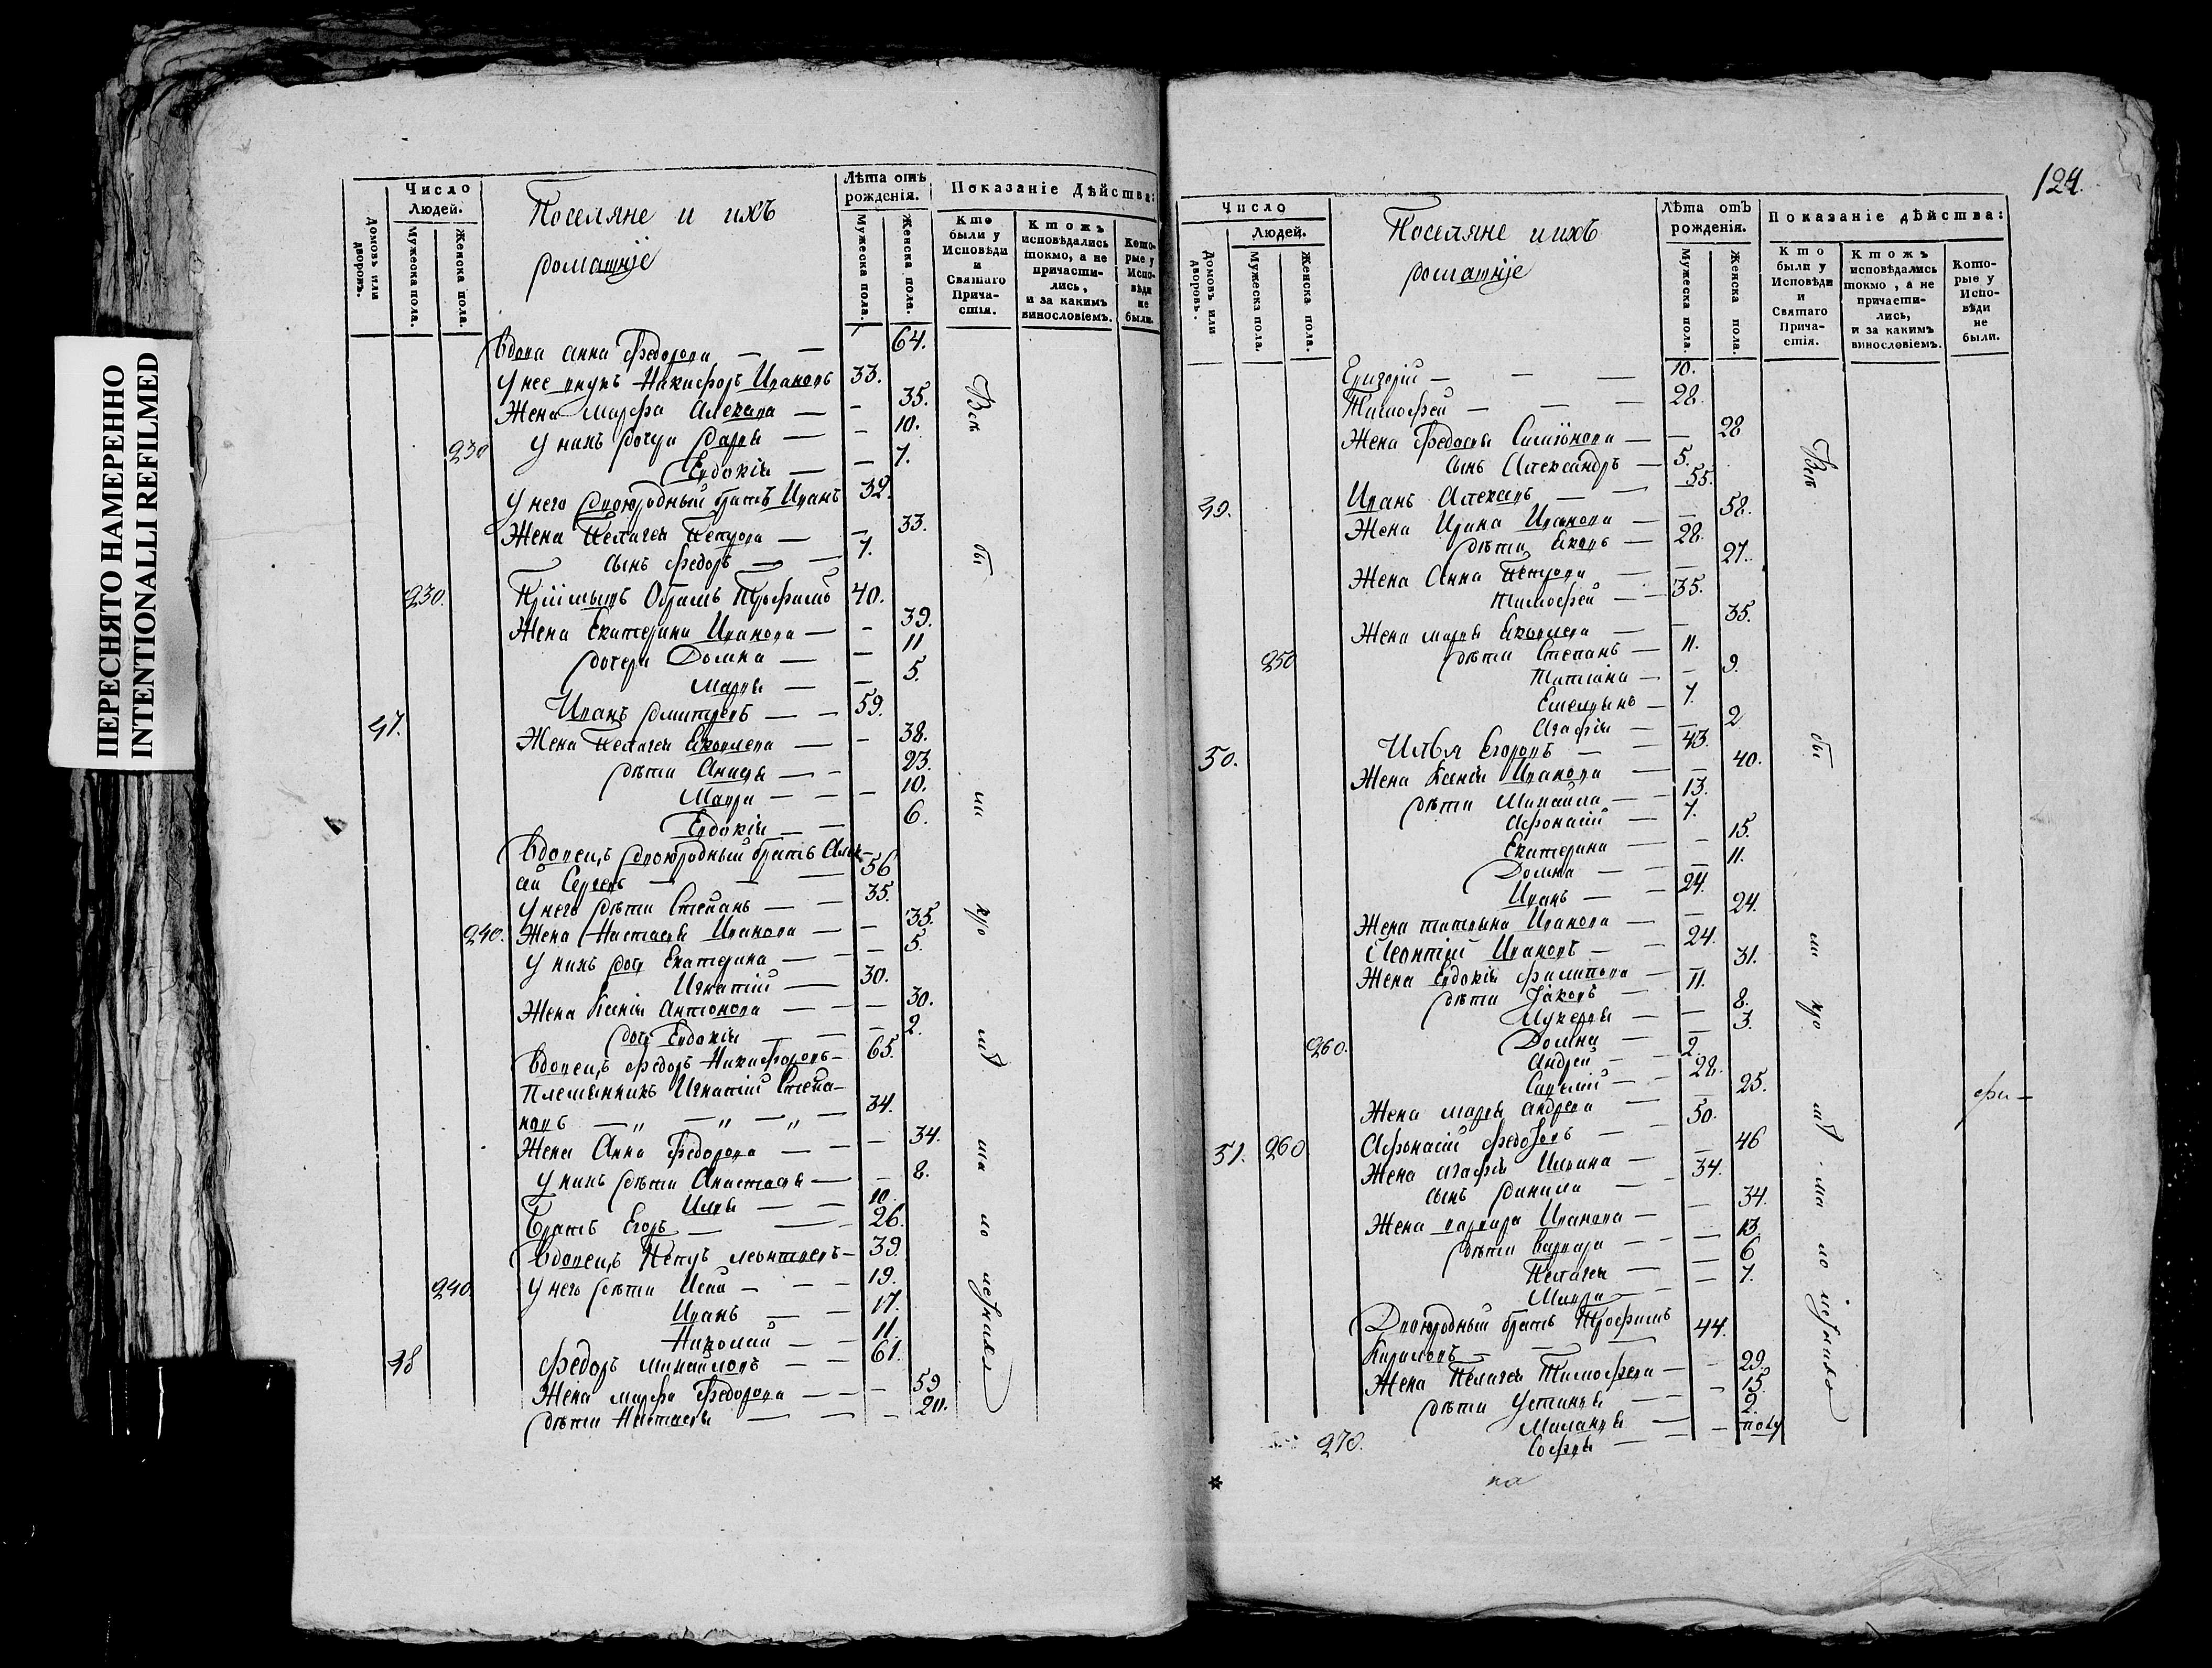 ПЕРЕСНЯТО НАМЕРЕННО
INTENTIONALLI REFILMED
Число Людей.
Домовъ или дворовъ.
Мужеска пола.
Женска пола.
Поселяне и ихъ
домашніе
Лѣта отъ рожденія.
Мужеска пола.
Женска пола.
Показаніе Дѣйства:
Кто были у Исповѣди и Святаго Прича- стія.
Ктожъ исповѣдались токмо, а не причасти- лись, и за какимъ винословіемъ.
Кото- рые у Испо- вѣди не были.
Вдова Анна Федорова — — 64.
У нее внукъ Никифоръ Ивановъ 33.
Жена Марфа — - 35.
230 У нихъ дочери Дарья — - 10.
Евдокія — — 7.
У него двоюродный братъ Иванъ 32.
Жена Пелагея Петрова — — 33.
сынъ Федоръ — — 7.
230. Пріимышъ 40.
Жена Екатерина Иванова — - 39.
дочери Домна — — 11
Марья — — 5.
47. Иванъ Дмитревъ — — 59.
Жена Пелагея Яковлева — - 38.
дѣти Анисья — - 23.
Мавра — — — 10.
Евдокія — — 6.
Вдовецъ двоюродный братъ Алек-
сѣй Сергевъ — — — 56
У него дѣти Степанъ — — 35.
240. Жена Настасья Иванова — - — 35.
У нихъ дочь Екатерина — — — 5.
Игнатій — 30.
Жена Ксенія Антонова — — — 30.
дочь Евдокія — — — 2.
Вдовецъ Федоръ Никифоровъ — 65.
Племянникъ Игнатій Степа-
новъ — „ — „ — „ — 34.
Жена Анна Федорова — — — 34.
У нихъ дѣти Анастасья — — 8.
Илья — — 10.
Братъ Егоръ — — 26.
Вдовецъ Петръ Леонтьевъ — 39.
240. У него дѣти Исай — — — 19.
Иванъ — — 17.
Николай — — 11.
48 Федоръ Михайловъ — — 61.
Жена Марфа Федорова — — — 59
дѣти Настасья — — — 20.
Всѣ
бы
ли
124.
Число
Людей.
Домовъ или дворовъ.
Мужеска пола.
Женска пола.
Поселяне и ихъ
домашніе
Лѣта отъ рожденія.
Мужеска пола.
Женска пола.
Показаніе дѣйства:
Кто были у Исповѣди и Святаго Прича- стія.
Ктожъ исповѣдались токмо, а не причасти- лись, и за какимъ винословіемъ.
Кото- рые у Испо- вѣди не были.
Григорій — — — 10.
Тимофей — — — 28.
Жена Федосья Симіонова — — 28
сынъ Александръ — 5.
49. Иванъ — — 55.
Жена Ирина Иванова — — 58.
дѣти Яковъ — 28.
Жена Анна Петрова — — 27.
Тимофей — — 35.
Жена Марья Яковлева — — 35.
250 дѣти Степанъ — 11.
Татіана — — 9.
Емельянъ — 7.
Агафія — — 2
50. Илья Егоровъ — — 43.
Жена Ксенія Иванова — — 40.
дѣти Михайла — — 13.
Афонасій — 7.
Екатерина — - 15.
Домна — — — 11.
Иванъ — — 24.
Жена Татьяна Иванова — — 24.
Леонтій Ивановъ — — 24.
Жена Евдокія Филипова — — 31.
дѣти Іаковъ — 11.
Лукерья — — 8.
260. Домна — — 3.
Андрей — — 2.
Савелій — — 28.
Жена Марья Андреева — — 25.
51. 260 Афонасій Федоровъ — — 50.
Жена Агафья Ильина — — 46
сынъ Данила — — 34.
Жена Варвара Иванова — — 34.
дѣти Варвара — — 13.
Пелагея — — 6
Мавра — — 7.
Двоюродный братъ Трофимъ
Кириловъ — — 44.
Жена Пелагея Тимофева — - 29.
дѣти Устинья — - 15.
Маланья — — 2.
270. Софья — — - полу
Всѣ
бы
ли
на